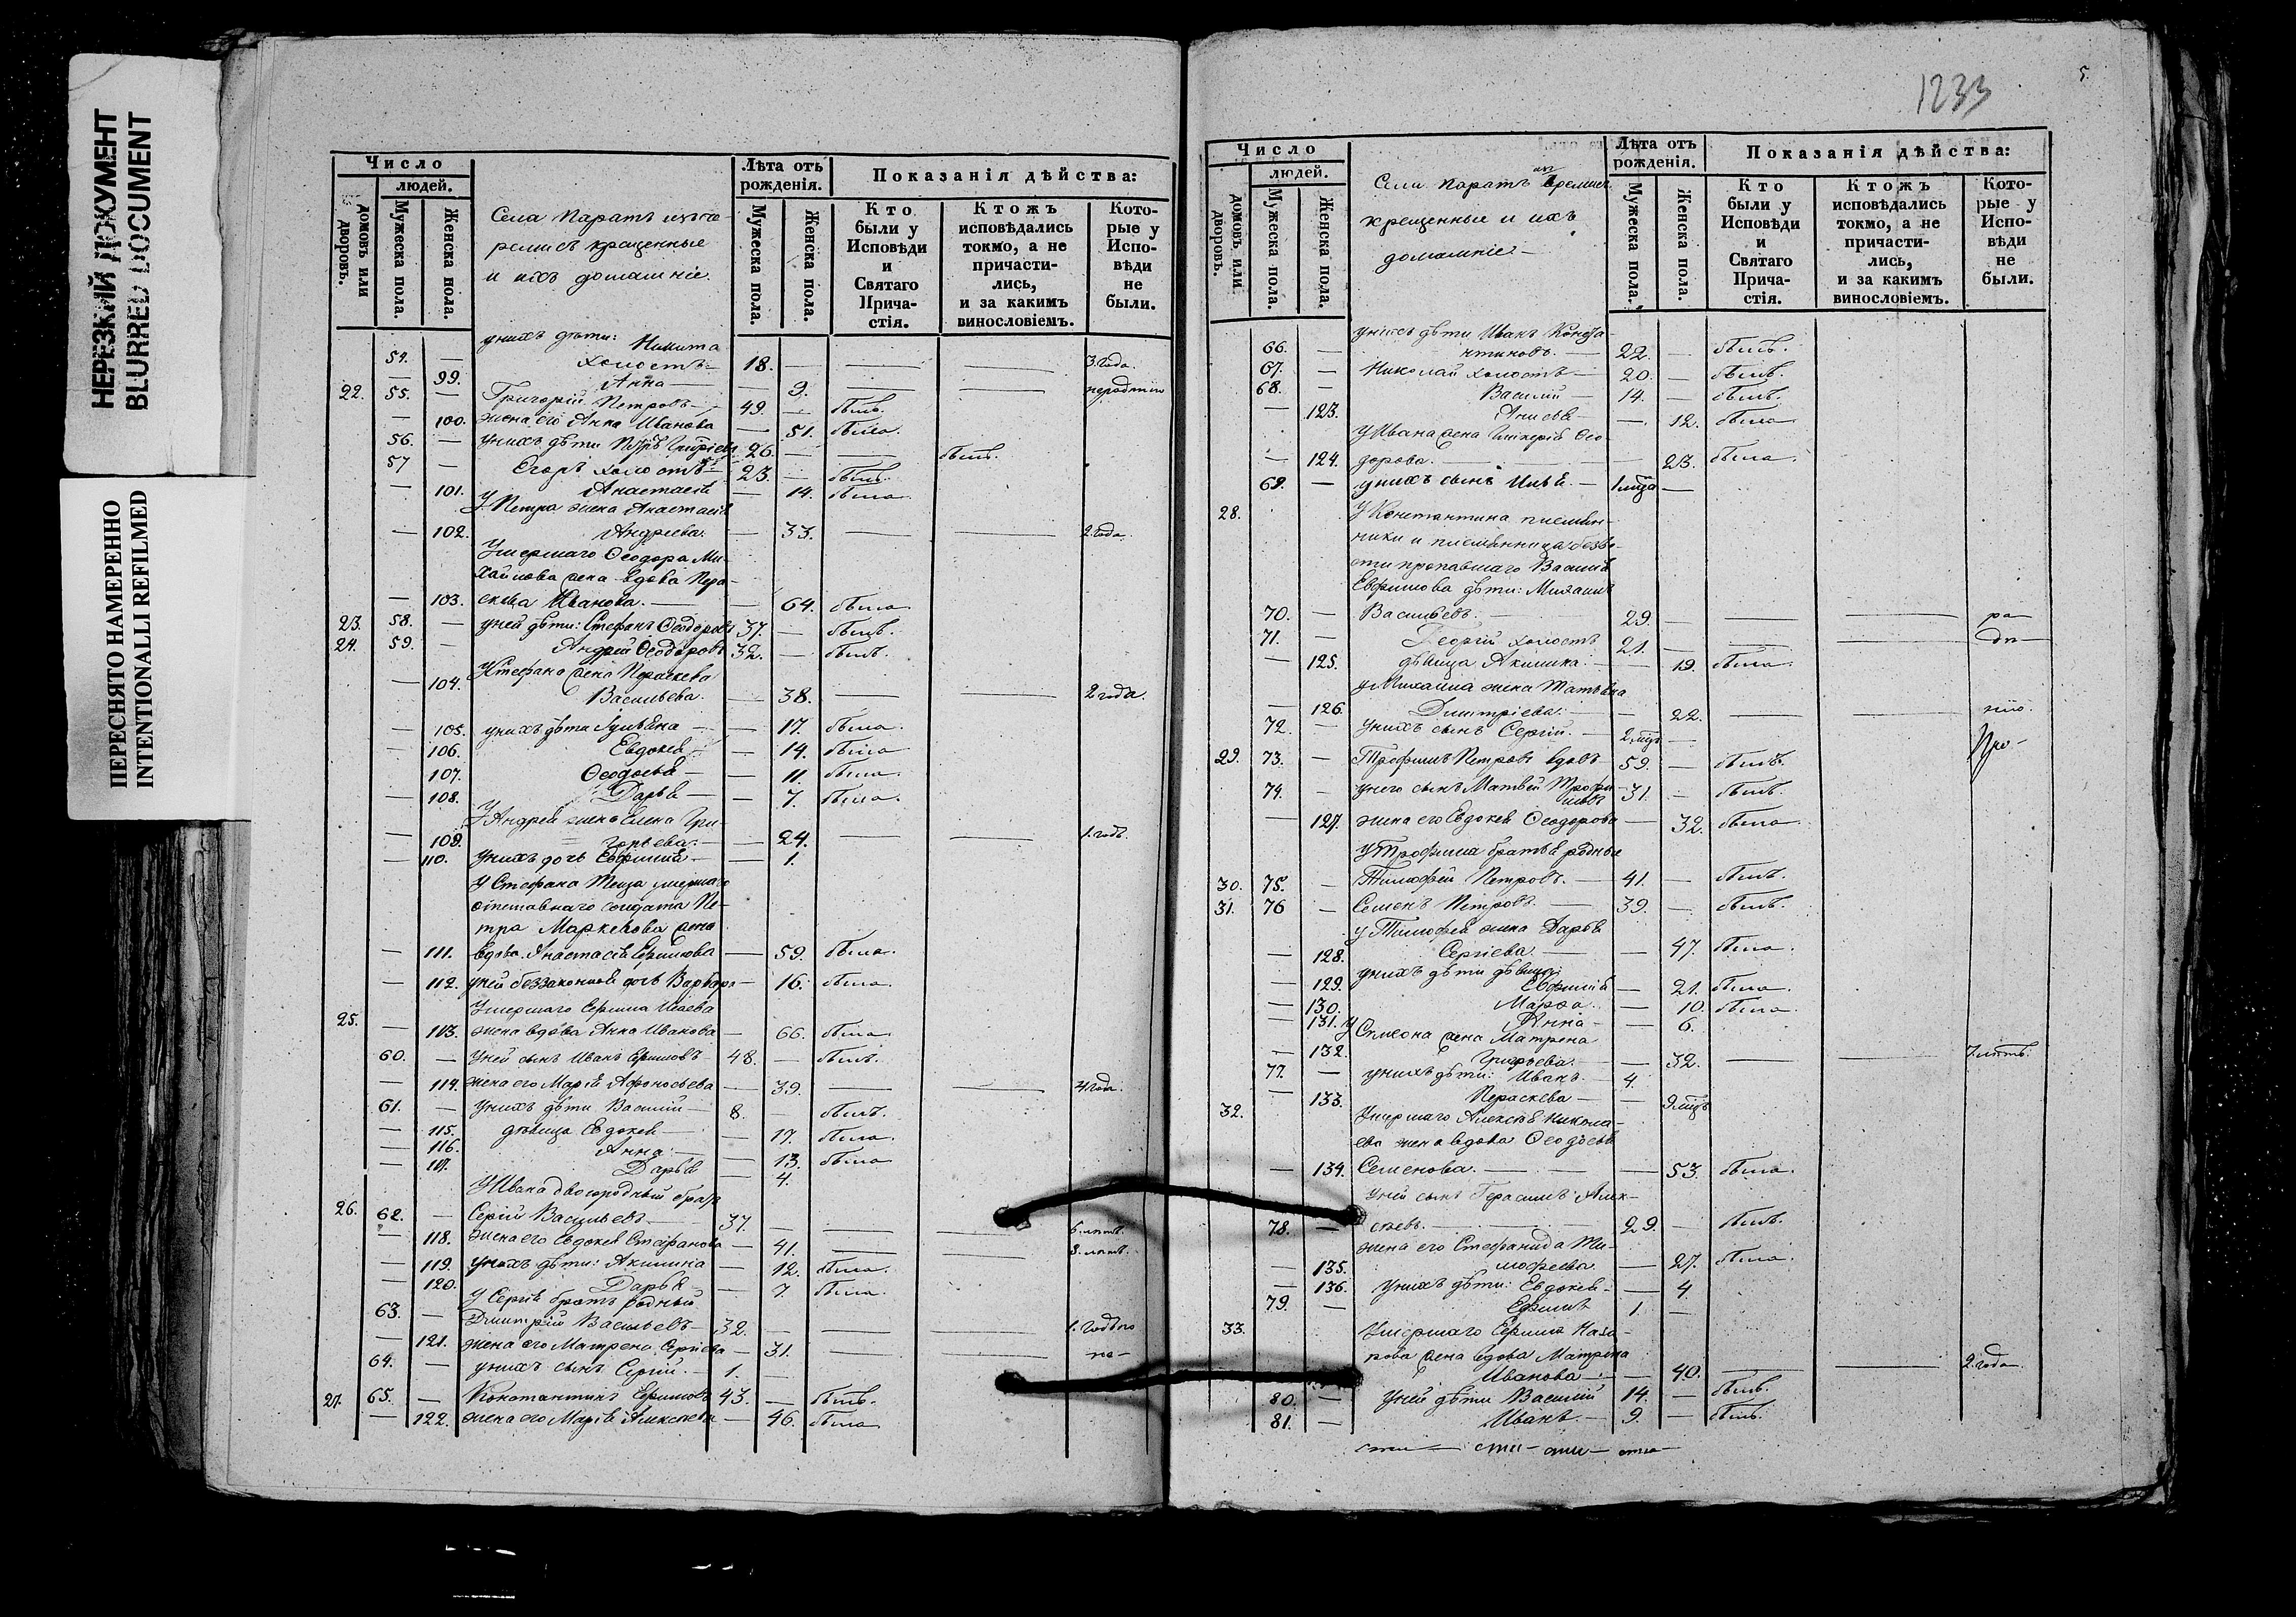 НЕРЕЗКИЙ ДОКУМЕНТ
BLURRED DOCUMENT
ПЕРЕСНЯТО НАМЕРЕННО
INTENTIONALLI REFILMED
Число
людей.
домовъ или дворовъ.
Мужеска пола.
Женска пола.
Села Паратъ изъ че-
ремисъ крещенные
и ихъ домашніе.
Лѣта отъ рожденія.
Мужеска пола.
Женска пола.
Показанія дѣйства:
Кто были у Исповѣди и Святаго Прича-стія.
Ктожъ исповѣдались токмо, а не причасти-лись, и за какимъ винословіемъ.
Кото-рые у Испо-вѣди не были.
у нихъ дѣти: Никита
54. — холостъ — 18. — — — 3. года.
— 99. Анна — 9. — —
22. 55. — Григорій Петровъ — 49. — былъ.
— 100. жена его Анна Иванова — 51. была.
56. — у нихъ дѣти Петръ Григорьевъ 26. — — былъ.
57 — Егоръ холостъ — 23. — былъ.
— 101. Анастасія — 14. была.
У Петра жена Анастасія
— 102. Андреева. — 33. — — 2 года.
Умершаго Ѳеодора Ми-
хайлова жена вдова Пера-
— 103. скева Иванова. — — 64. была.
23. 58. — у ней дѣти: Стефанъ Ѳеодоровъ 37. — былъ.
24. 59. — Андрей Ѳеодоровъ 32. — былъ.
У Стефана жена Пераскева
— 104. Васильева. — 38. — — 2 года.
— 105. у нихъ дѣти Іуліяна — — 17. была.
— 106. Евдокія — — 14. была
— 107. Ѳеодосія — — 11. была.
— 108. Дарья — — 7. была.
У Андрея жена Елена Гри-
— 109. горьева. — — 24. — — 1. годъ.
— 110. У нихъ дочь Евфимія. — — 1.
У Стефана теща умершаго
отставнаго солдата Пе-
тра Маркелова жена
— 111. вдова Анастасія Ермилова — 59. была.
— 112. у ней беззаконная дочь Варвара — 16. была.
25. Умершаго Ермила Исаева
— 113. жена вдова Анна Иванова — 66. была.
60. — У ней сынъ Иванъ Ермиловъ 48. — былъ.
— 114. жена его Марія Афонасьева — 39. — — 4 года.
61. — У нихъ дѣти Василій — 8. — былъ.
— 115. дѣвица Евдокія — — 17. была.
— 116. Анна — — 13. была
— 117. Дарья — 4.
У Ивана двоюродный братъ
26. 62. — Сергій Васильевъ — 37. — — — 6. лѣтъ.
— 118. жена его Евдокія Стефанова — 41. — — 8. лѣтъ.
— 119. у нихъ дѣти: Акилина — 12. была.
— 120. Дарья — — 7. была.
У Сергія братъ родный
63. — Дмитрій Васильевъ — 32. — — — 1. годъ по
— 121. жена его Матрена Сергіева — 31. — — не —
64. — у нихъ сынъ Сергій. 1. —
27. 65. — Константинъ Ермиловъ 43. — былъ.
— 122. жена его Марія Алексѣева — 46. была
1233
5.
Число
людей.
домовъ или дворовъ.
Мужеска пола.
Женска пола.
Села Паратъ изъ Черемисъ
крещенные и ихъ
домашніе —
Лѣта отъ рожденія.
Мужеска пола.
Женска пола.
Показанія дѣйства:
Кто были у Исповѣди и Святаго Прича-стія.
Ктожъ исповѣдались токмо, а не причасти-лись, и за какимъ винословіемъ.
Кото-рые у Испо-вѣди не были.
у нихъ дѣти Иванъ Конста-
66. — нтиновъ. — 22. — былъ.
67. — Николай холостъ — 20. — былъ.
68. — Василій — 14. — былъ.
— 123. Анисья — 12. была
У Ивана жена Гликерія Ѳео-
— 124. дорова. — — 23. была.
69. — у нихъ сынъ Илья. — 1 мцъ —
28. У Константина племян-
ники и племянница безвѣ-
сти пропавшаго Василія
Евфимова дѣти: Михаилъ
70. — Васильевъ. — 29. — — — ра-
71. — Георгій холостъ 21. — — — дѣ-
— 125. дѣвица Акилина. — — 19. была.
у Михаила жена Татьяна
— 126. Димитріева. — — 22. — — нію.
72. — У нихъ сынъ Сергій. — 2 мцъ —
29. 73. — Трофимъ Петровъ вдовъ 59. — былъ.
74. — у него сынъ Матвей Трофи-
мовъ 31. — былъ.
— 127. жена его Евдокія Ѳеодорова — 32. была.
У Трофима братья родные
30. 75. — Тимофей Петровъ. — 41. — былъ.
31. 76 — Семенъ Петровъ. — 39. — былъ.
у Тимофея жена Дарья
— 128. Сергіева. — — 47. была.
у нихъ дѣти дѣвица
— 129. Евфимія — 21. была.
— 130. Марѳа. — 10. была.
— 131. Анна — — 6.
У Симеона жена Матрена
— 132. Григорьева. — — 32. — — 7. лѣтъ.
77. — у нихъ дѣти: Иванъ. — 4.
— 133. Пераскева — — 9 мцъ
32. Умершаго Алексѣя Никола-
ева жена вдова Ѳеодосія
— 134. Семенова. — — — 53. была.
У ней сынъ Герасимъ Алек-
78. — сѣевъ. — 29. — былъ.
жена его Стефанида Ти-
— 135. мофеева. — 27. была.
— 136. У нихъ дѣти: Евдокія — — 4
79. — Ефимъ 1. —
33. Умершаго Ермила Наза-
рова жена вдова Матрена
Иванова — — 40. — — 2. года.
80. — У ней дѣти Василій 14. — былъ.
81. — Иванъ. — 9. — былъ.